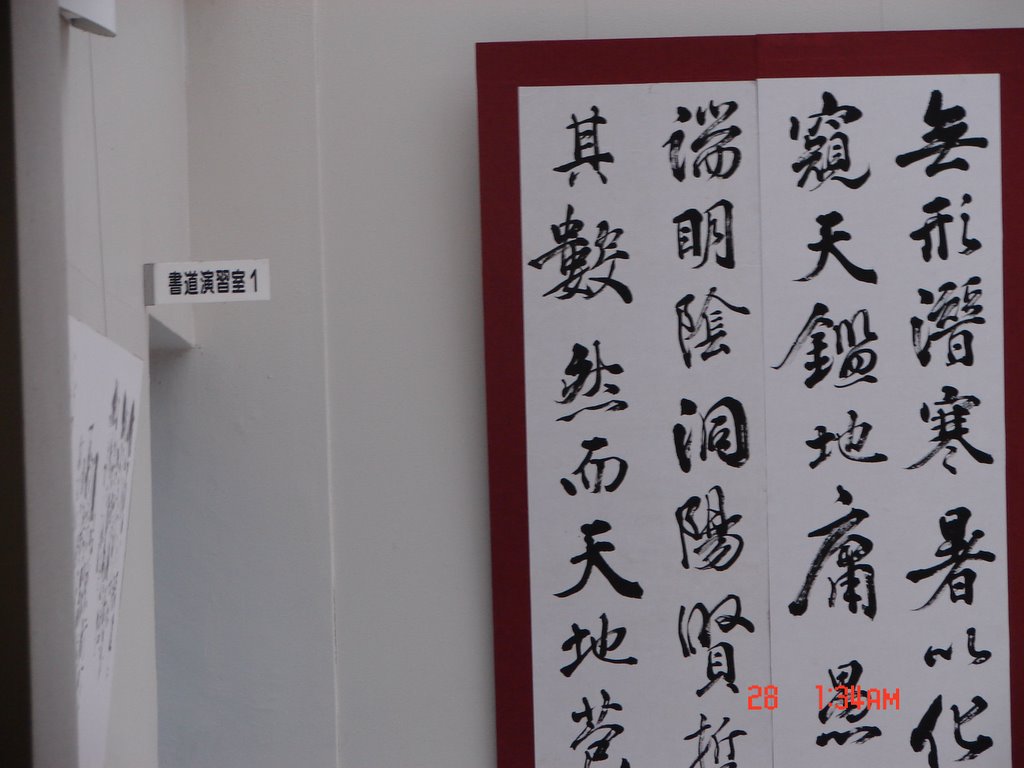 書道演習室1
無形潛寒暑以化
窺天鑑地庸愚
端明陰洞陽賢哲
其數然而天地苞
28 1:34AM